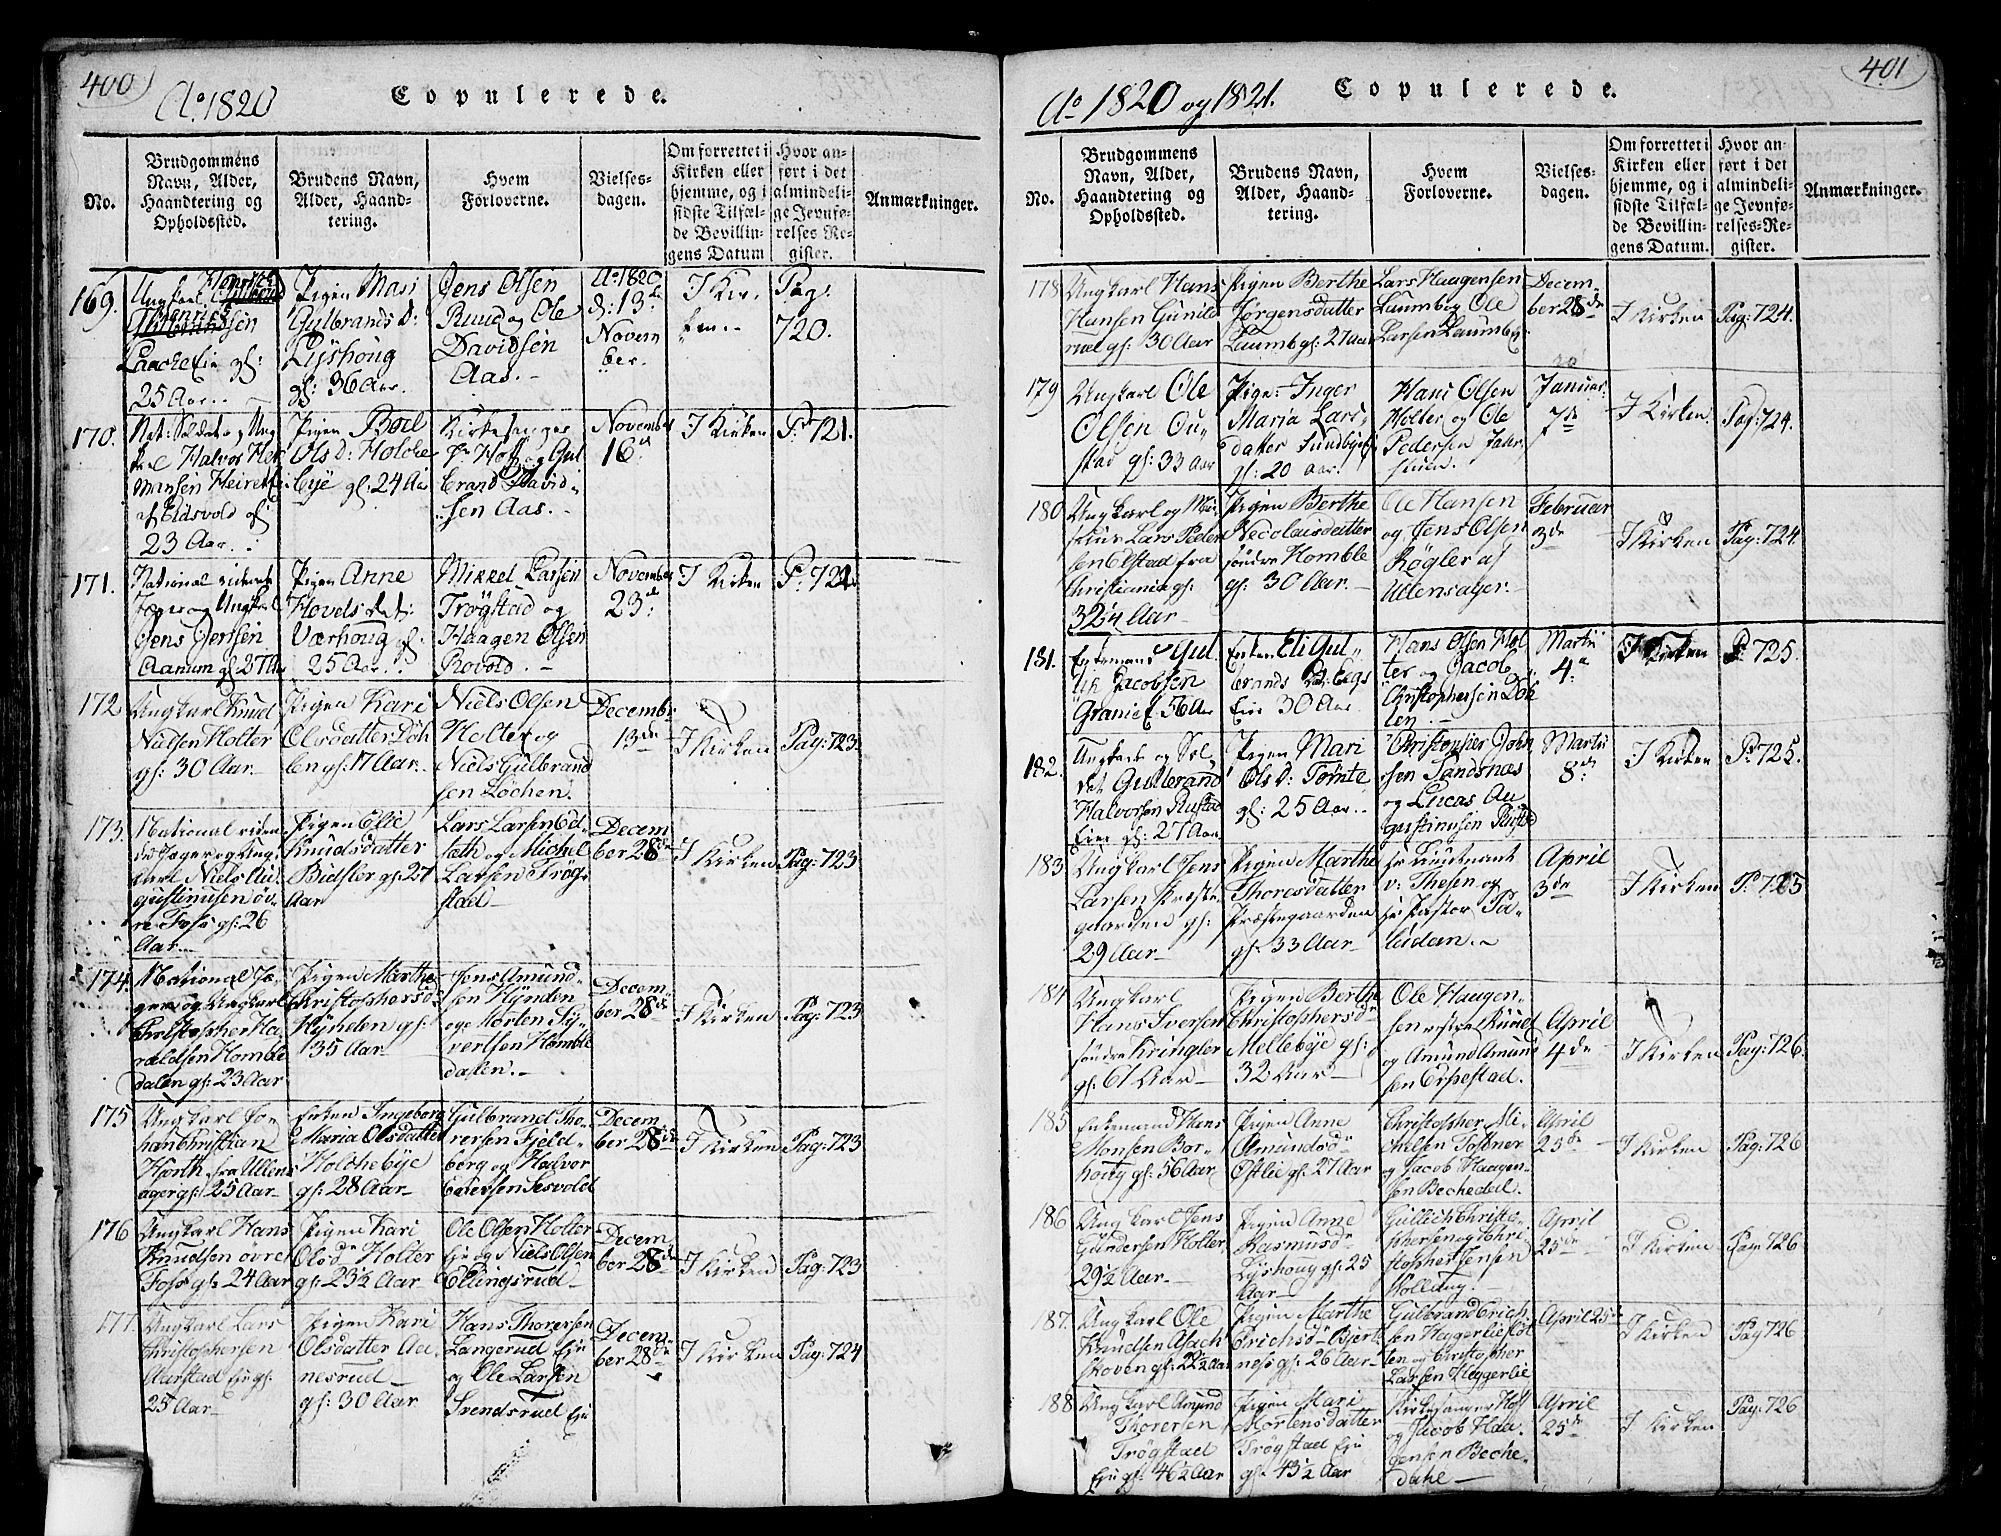 400
Ao 1820
Copulerede.
No.
Brudgommens
Navn, Alder,
Haandtering og
Opholdssted.
Brudens Navn,
Alder, Haand-
tering.
Hvem
Forloverne.
Vielses-
dagen.
Om forrettet i
Kirken eller
hjemme, og i
sidste Tilfæl-
de Bevillin-
gens Datum
Hvor an-
ført i det
almindeli-
ge Jevnfø-
relses-Re-
gister.
Anmærkninger.
169.
25 Aar.
Pigen Mari
Gulbrands D:
Lyshoug
gl: 36 Aar.
Jens Olsen
Ruud og Ole
Davidsen
Aas.
Ao 1820
d: 13de
Novem
ber.
I Kir-
ken
Pag:
720.
170.
23 Aar.
Pigen
Ols D: Holche
bye gl: 24 Aar
Kirkesanger
Hoff og Gul
brand David-
sen Aas.
November
16
I Kirken
P: 721.
171.
National ridende
Jæger og Ungkarl
Jens Jensen
Aanum gl: 27 Aar
Pigen Anne
Hovels dat:
Værhoug gl:
25 Aar.
Mikkel Larsen
Trøgstad og
Haagen Olsen
Rovold.
November
23
I Kirken
172
Ungkarl Knud
Nielsen Holter
gl: 30 Aar
Pigen Kari
Olsdatter Løh
len gl: 17 Aar.
Niels Olsen
Holter og
Niels Gulbrand
sen Løchen.
Decembr
13de
I Kirken
Pag: 723.
173.
National riden
de Jæger og Ung
karl Niels Au
gustinusen øv-
re Foss gl: 26
Aar
Pigen Elie
Knudsdatter
Bidsler gl: 27
Aar
Lars Larsen
og Michel
Larsen Trøg
stad
Decem
ber 28de
I Kirken
Pag: 723
174.
National Jæ
ger og Ungkarl
Christopher Ha
raldsen Homble
dalen gl: 23 Aar
Pigen Marthe
Christophersd
Hÿnden gl:
35 Aar
Jens Amund
sen Hÿnden
og Morten Sÿ
vertsen Homble
dalen.
Decem
ber 28de
I Kirken
Pag: 723
175
Ungkarl Jo
han Christian
Horth fra Ullens
ager gl: 25 Aar
Enken Ingeborg
Maria Olsdatter
Holchebÿe
gl: 28 Aar
Gulbrand Tho
rersen Fjeld
berg og Halvor
Decem
ber 28de
I Kirken
Pag: 723
176
Ungkarl Hans
Knudsen øvre
Foss gl: 24 Aar
Pigen Kari
Olsdr Holter
gl: 23½ Aar
Ole Olsen Holter
Eie og Niels Olsen
Ellingsrud
Decem
ber 28de
I Kirken
Pag: 723
177.
Ungkarl Lars
Christophersen
Aurstad Eie gl:
25 Aar
Pigen Kari
Olsdatter Au
nesrud
gl: 30 Aar
Hans Thorersen
Langerud Eie
og Ole Larsen
Svendsrud Eie
Decem
ber 28de
I Kirken
Pag: 724
401
Ao 1820 og 1821.
Copulerede.
No.
Brudgommens
Navn, Alder,
Haandtering og
Opholdssted.
Brudens Navn,
Alder, Haand-
tering.
Hvem
Forloverne.
Vielses-
dagen.
Om forrettet i
Kirken eller
hjemme, og i
sidste Tilfæl-
de Bevillin-
gens Datum.
Hvor an-
ført i det
almindeli-
ge Jevnfø-
relses-Re-
gister.
Anmærkninger.
178
Ungkarl Hans
Hansen Gunild
rud gl: 30 Aar
Pigen Berthe
Jørgensdatter
Laumb gl: 27 aar
Lars Haagensen
Laumb og Ole
Larsen Laumb
Decem-
ber 28de
I Kirken
Pag: 724.
179
Ungkarl Ole
Olsen Ou-
stad gl: 33 Aar
Pige: Inger
Maria Lars
datter Sundbye
gl: 20 aar.
Hans Olsen
Holter og Ole
Pedersen
Januar:
7de
I Kirken
Pag: 724.
180
Ungkarl og Mur
Lars Peder
sen Elstad fra
Christiania gl:
32¼ Aar
Pigen Berthe
Nicolaisdatter
søndre Homble
gl: 30 Aar
Ole Hansen
og Jens Olsen
Røgler af
Ullensager.
Februar
3de
I Kirken
Pag: 724
181.
Enkemand Gul
Jacobsen
56 Aar
Enken Eli Gul
brands D: Eegs
Eie 30 Aar.
Hans Olsen Hol
ter og Jacob
Christophersen Døh
len.
Martii
4
I Kirken
P: 725.
182.
Ungkarl og Sol
dat Gulbrand
Halvorsen Rustad
Eier gl: 27 Aar
Pigen Mari
Ols D: Tømte
gl: 25 Aar.
Christopher John
sen Sandsnæs
og Lucas Au
gustinusen
Martii
8
I Kirken
P: 725.
183
Ungkarl Jens
Larsen Præste
gaarden gl:
29 Aar
Pigen Marthe
Thoresdatter
Præstegaarden
gl: 33 Aar
Hr Lieutenant
v: Thesen og
Hr Pastor Pa
ludan.
April
3de
I Kirken
P: 725
184
Ungkarl
Hans Iversen
søndre Kringler
gl: 61 Aar
Pigen Berthe
Christophersdr
Mellebÿe gl:
32 Aar
Ole Haagen
sen Ruud
og Amund Amund
sen Erpestad.
April
4de
I Kirken
Pag: 726.
185
Enkemand Hans
Monsen Bor
houg gl: 56 Aar
Pigen Anne
Amundsdr
Østlie gl: 27 Aar
Christopher Mi
chelsen Tossner
og Jacob Haagen
sen Bechedal.
April
25de
I Kirken
Pag: 726
186
Ungkarl Jens
Gundersen Holter
29½ Aar
Pigen Anne
Rasmusdr
Lÿshoug gl: 25
Aar
Gullich Christo
phersen og Chri
stopher Jensen
Holtaug.
April
25de
I Kirken
Pag: 726
187.
Ungkarl Ole
Knudsen Asach
skoven gl: 22½ Aar
Pigen Marthe
Erichsdr Bjerk
ness gl: 26 Aar
Gulbrand Erich
sen Heggerlie
og Christopher
Larsen Heggerlie
April 25de
I Kirken
Pag 726
188
Ungkarl Amund
Thorersen
Trøgstad
Eie gl: 46½ Aar
Pigen Mari
Mortensdatter
Trøgstad Eie
gl: 43½ Aar
Kirkesanger Hoff
og Jacob Haa
gensen Beche
dahl
April
25de
I Kirken
Pag: 726